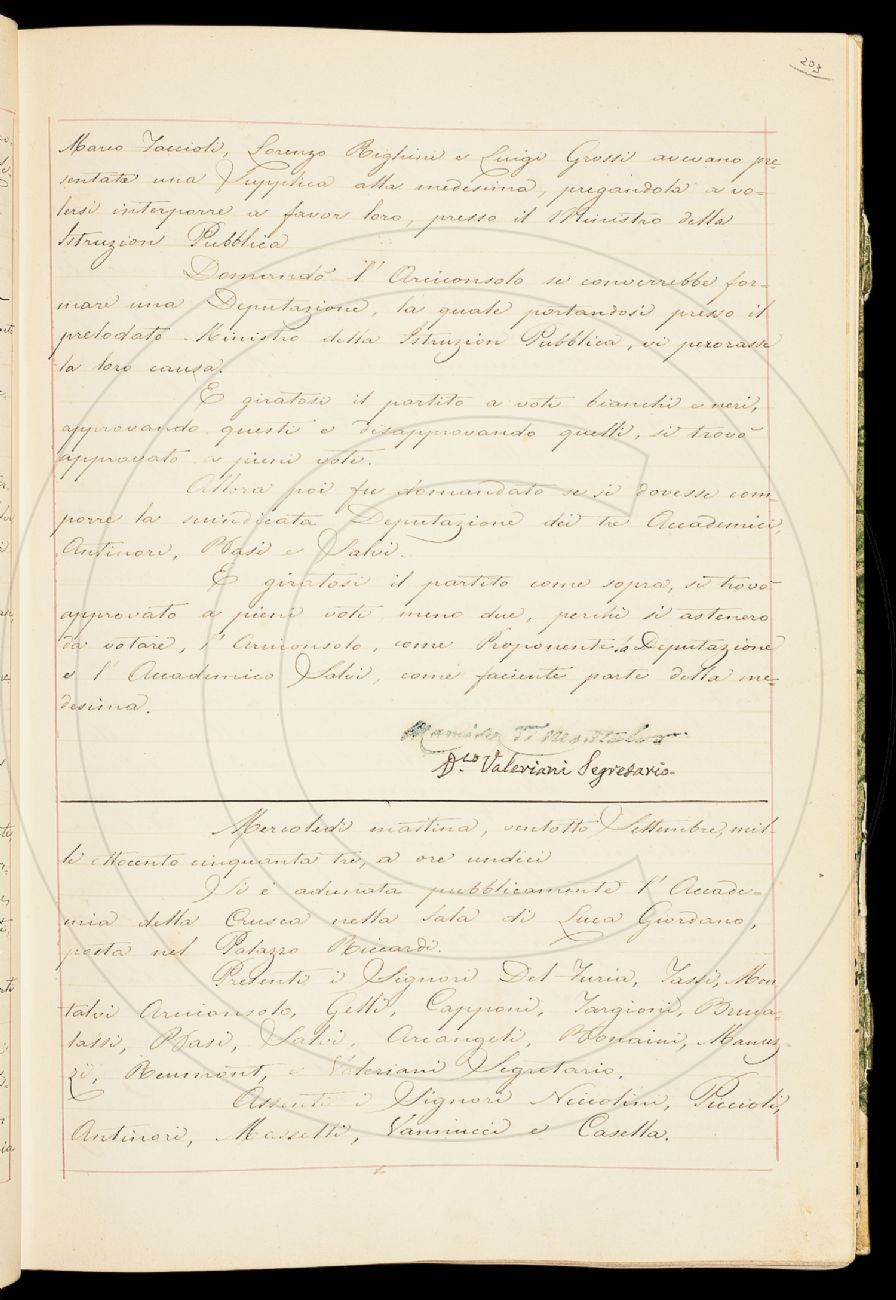 203
Marco Taccioli, Lorenzo Righini e Luigi Grossi avevano pre=
sentata una Supplica alla medesima, pregandola a vo=
lersi interporre a favor loro, presso il Ministro della
Istruzion Pubblica
Domandò l' Arciconsolo se converrebbe for=
mare una Deputazione, la quale portandosi presso il
prelodato Ministro della Istruzion Pubblica, vi perorasse
la loro causa.
E giratosi il partito a voti bianchi e neri,
approvando questi e disapprovando quelli, si trovò
approvato a pieni voti.
Allora poi fu domandato se si dovesse com=
porre la suindicata Deputazione dei tre Accademici,
Antinori, Basi e Salvi.
E giratosi il partito come sopra, si trovò
approvato a pieni voti meno due, perchè si astenero
da votare, l' Arciconsolo, come Proponente la Deputazione
e l' Accademico Salvi, come faciente parte della me=
desima.
Di Montalvo
D.co Valeriani Segretario
Mercoledì mattina, ventotto Settembre, mil=
le ottocento cinquanta tre, a ore undici
Si è adunata pubblicamente l' Accade=
mia della Crusca nella Sala di Luca Giordano,
posta nel Palazzo Riccardi.
Presenti i Signori Del-Furia, Tassi, Mon
talvi Arciconsolo, Gelli, Capponi, Targioni, Bruca=
lassi, Basi, Salvi, Arcangeli, Bonaini, Manuz=
zi, Reumont, e Valeriani Segretario.
Assenti i Signori Niccolini, Puccioli,
Antinori, Masselli, Vannucci e Casella.